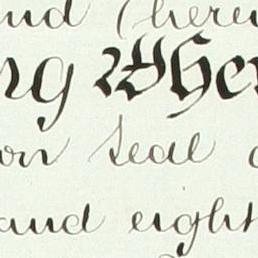 and (herei
ng Whe
on seal
and eight